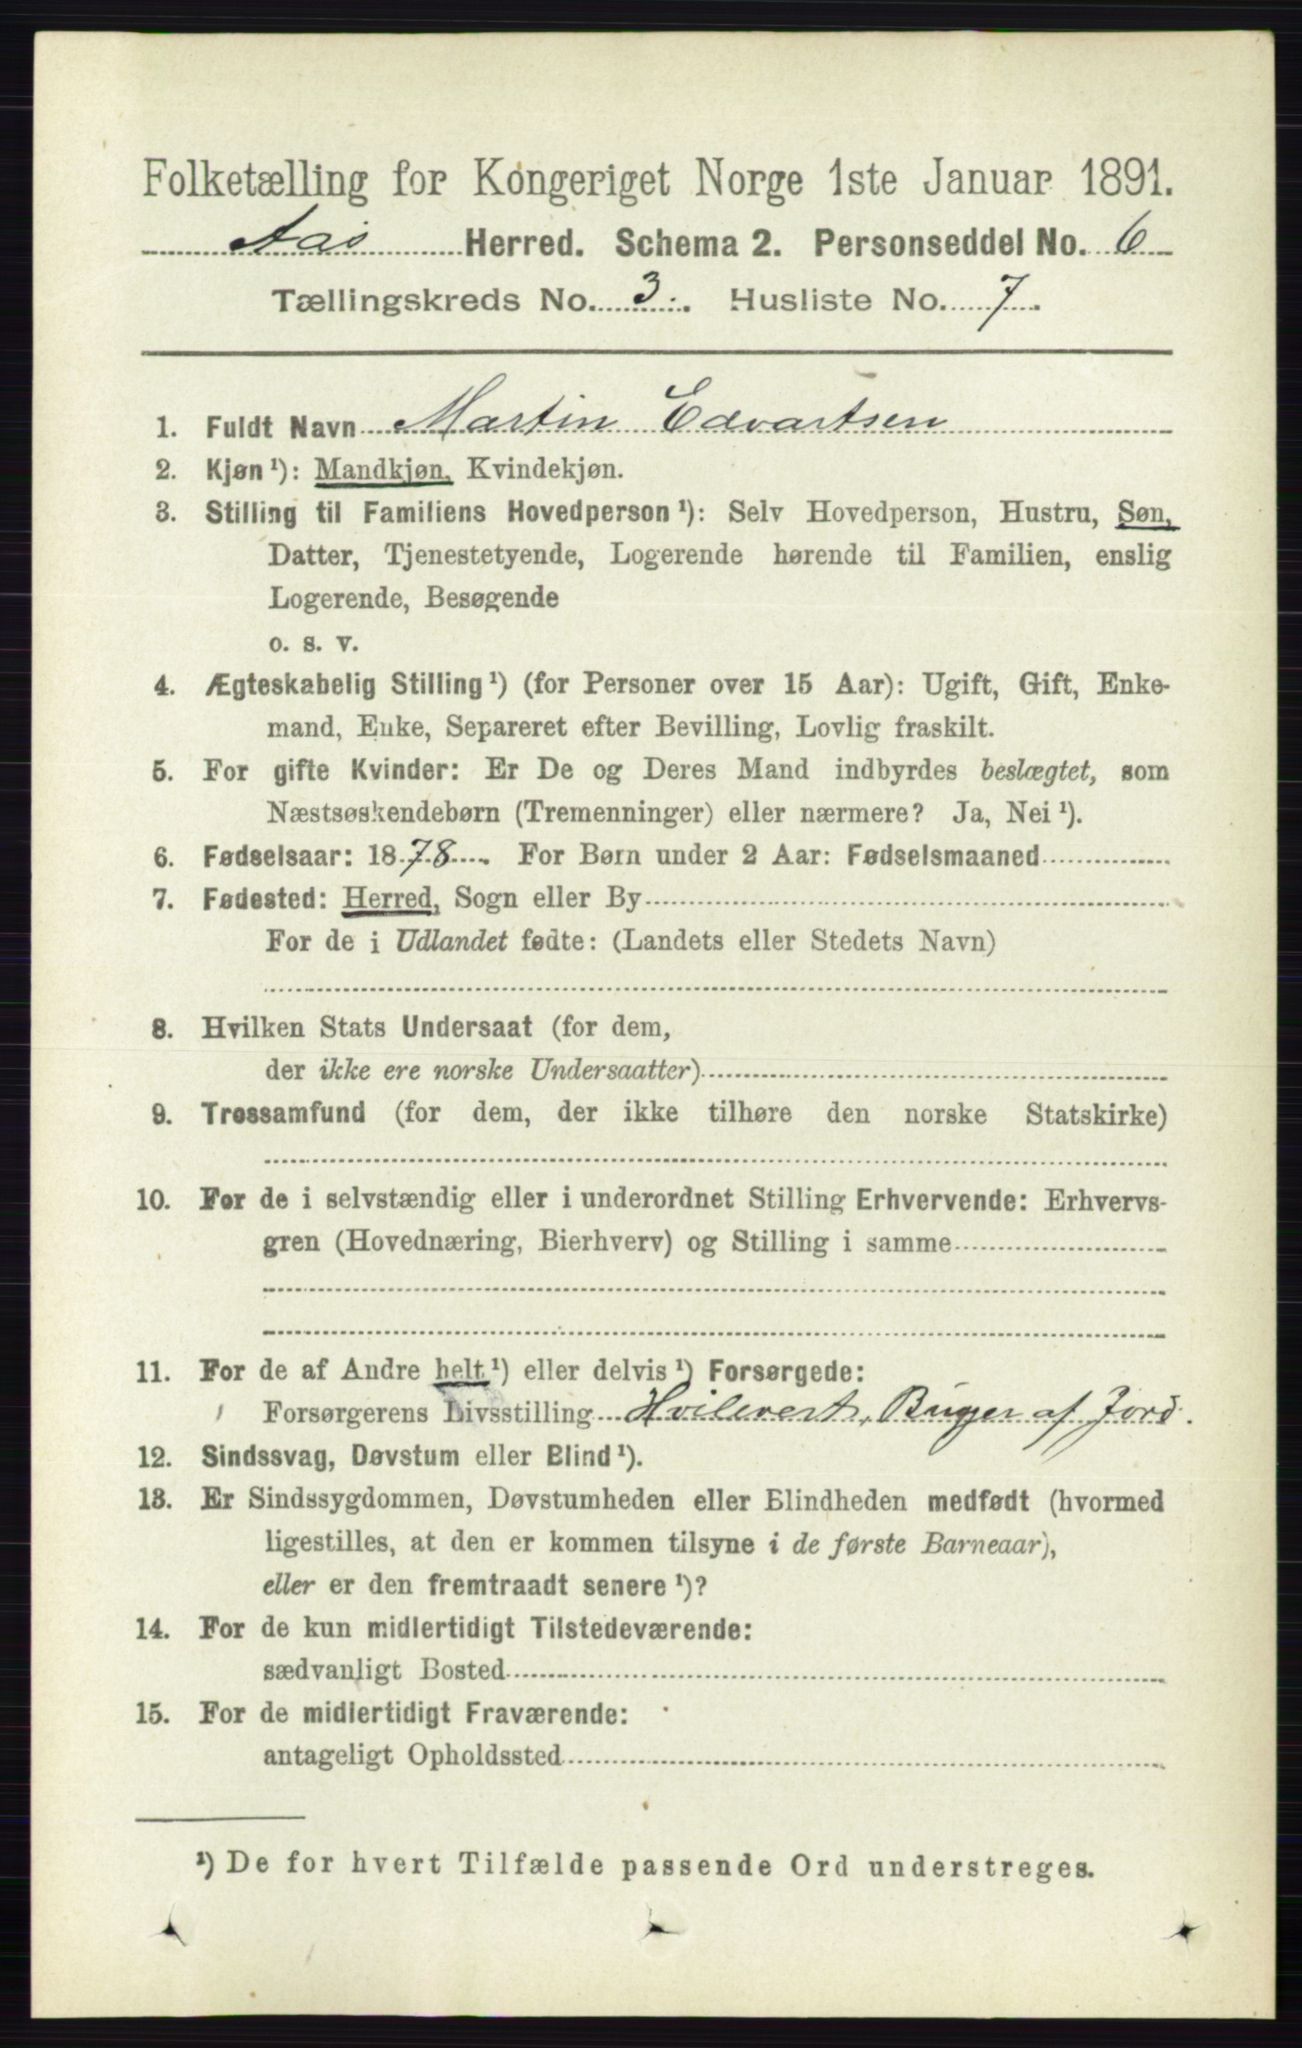 Folketælling for Kongeriget Norge 1ste Januar 1891.
Aas Herred. Schema 2. Personseddel No. 6
Tællingskreds No. 3. Husliste No. 7.
1. Fuldt Navn Martin Edvartsen
2. Kjøn ¹): Mandkjøn, Kvindekjøn.
3. Stilling til Familiens Hovedperson ¹): Selv Hovedperson, Hustru, Søn,
Datter, Tjenestetyende, Logerende hørende til Familien, enslig
Logerende, Besøgende
o. s. v.
4. Ægteskabelig Stilling ¹) (for Personer over 15 Aar): Ugift, Gift, Enke-
mand, Enke, Separeret efter Bevilling, Lovlig fraskilt.
5. For gifte Kvinder: Er De og Deres Mand indbyrdes beslægtet, som
Næstsøskendebørn (Tremenninger) eller nærmere? Ja, Nei ¹).
6. Fødselsaar: 1878. For Børn under 2 Aar: Fødselsmaaned
7. Fødested: Herred, Sogn eller By
For de i Udlandet fødte: (Landets eller Stedets Navn)
8. Hvilken Stats Undersaat (for dem,
der ikke ere norske Undersaatter)
9. Trossamfund (for dem, der ikke tilhøre den norske Statskirke)
10. For de i selvstændig eller i underordnet Stilling Erhvervende: Erhvervs-
gren (Hovednæring, Bierhverv) og Stilling i samme
11. For de af Andre helt ¹) eller delvis ¹) Forsørgede:
Forsørgerens Livsstilling Hvilevert, Buger af Jord.
12. Sindssvag, Døvstum eller Blind ¹).
13. Er Sindssygdommen, Døvstumheden eller Blindheden medfødt (hvormed
ligestilles, at den er kommen tilsyne i de første Barneaar),
eller er den fremtraadt senere ¹)?
14. For de kun midlertidigt Tilstedeværende:
sædvanligt Bosted
15. For de midlertidigt Fraværende:
antageligt Opholdssted
¹) De for hvert Tilfælde passende Ord understreges.